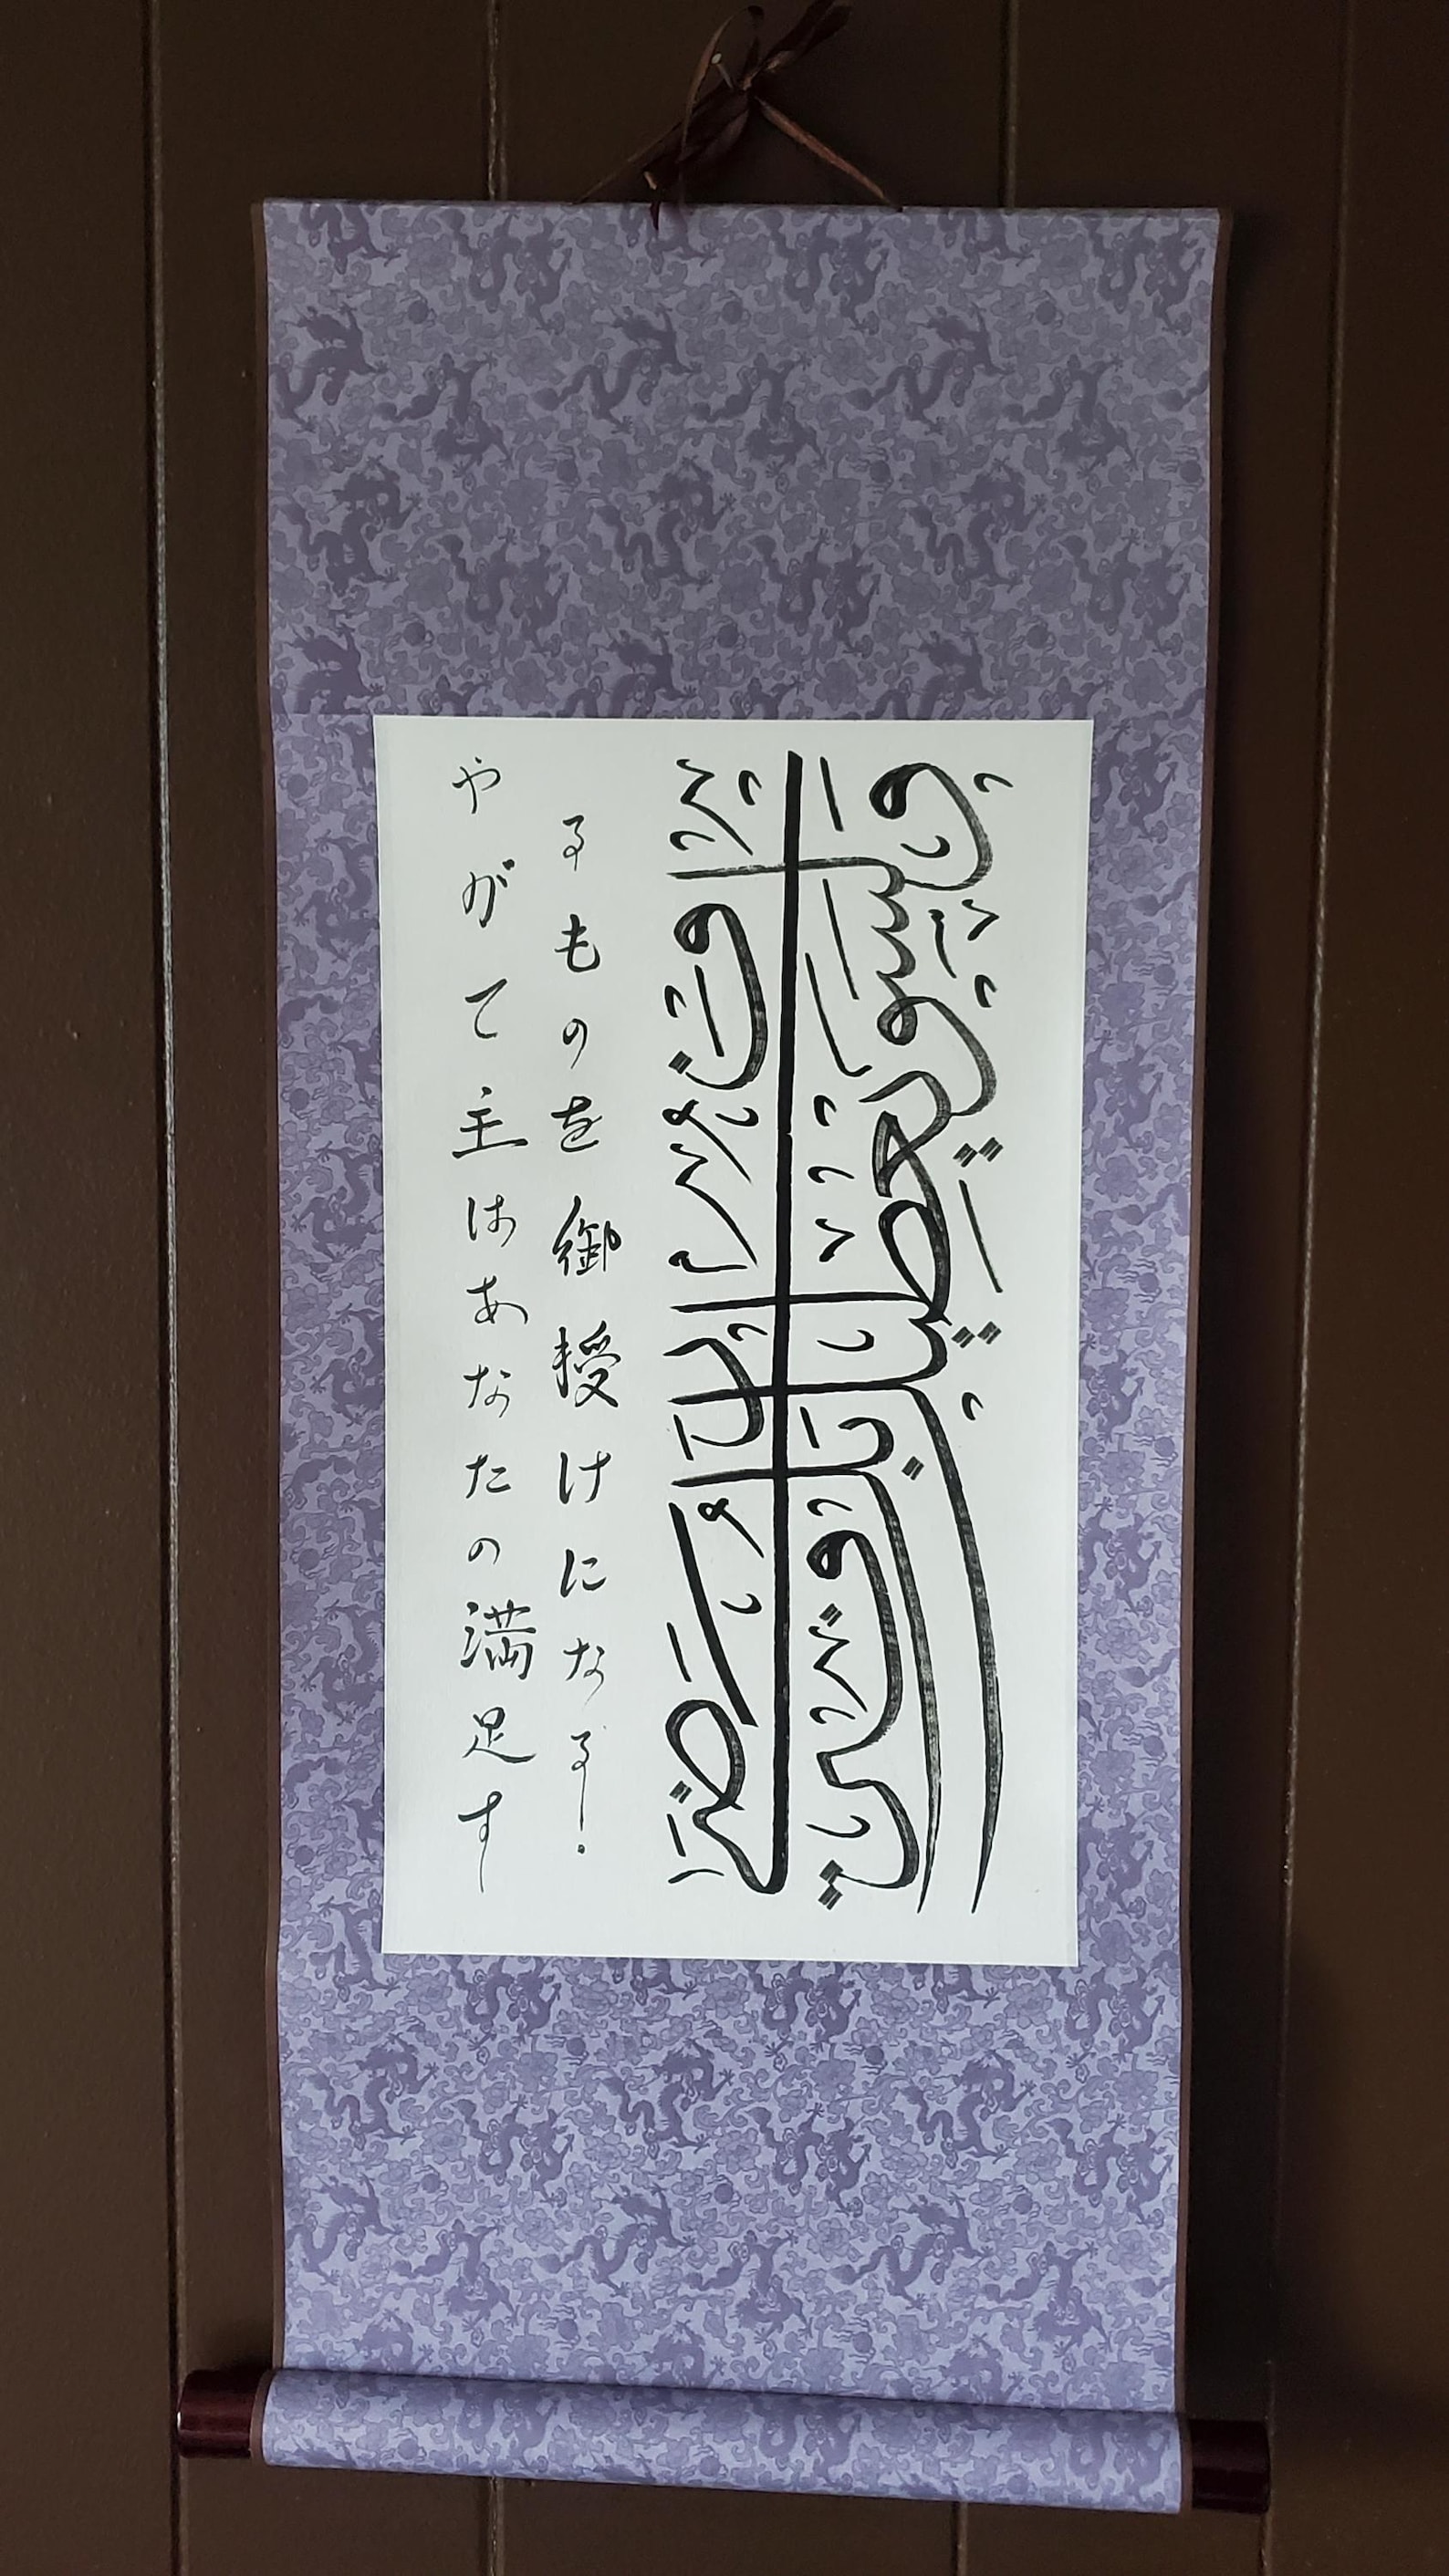 وَلَسَوْفَ يُعْطِيكَ رَبُّكَ فَتَرْضَى
やがて主はあなたの満足す
るものを御授けになる。